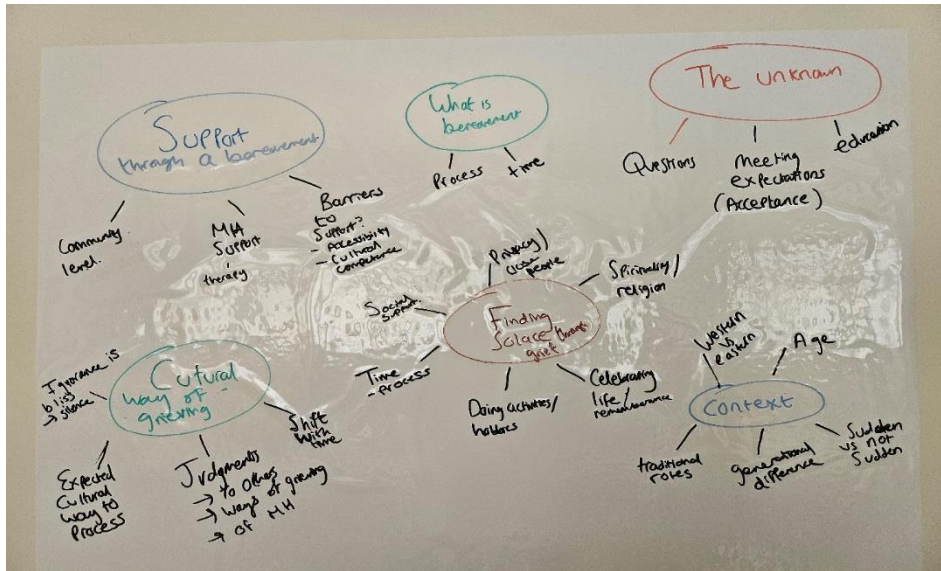 Support
through a bereavement
Community
level.
MH
Support
therapy
Barriers
to
Support?
- Accessibility
- Cultural
competance
What is
bereavement
Process
time
The unknown
Questions
Meeting
expectations
(Acceptance)
education
Finding
Solace through
grief
Privacy/
close
people
Spirituality/
religion
Social
Support
Time
- Process
Doing activities/
hobbies
Celebrating
life/
rememberance
Cutural
way of
grieving
Ignorance is
bliss
→ silence
Expected
Cultural
way to
Process
Judgments
→ to others
→ ways of grieving
→ of MH
Shift
with
time
Context
Western
vs
eastern
Age
traditional
roles
generational
difference
Sudden
vs not
Sudden